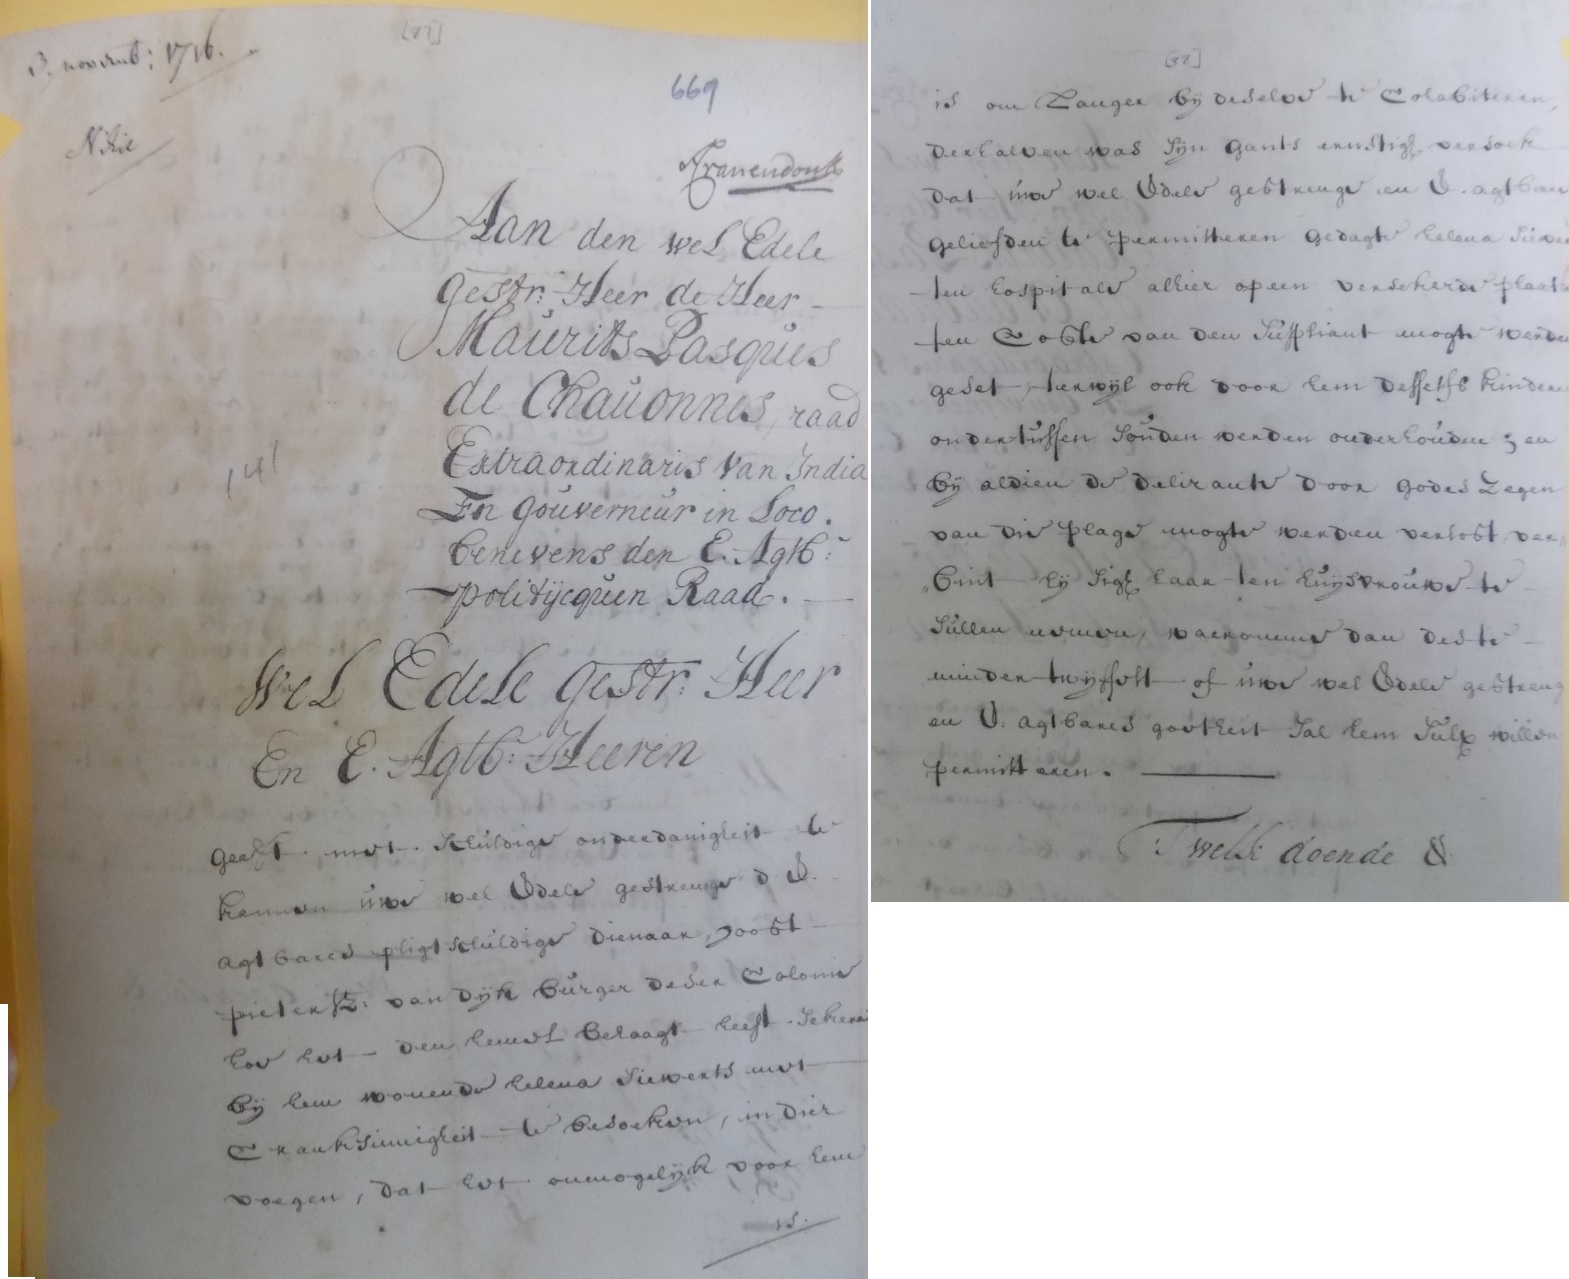 3. novemb: 1716.
[81]
669
Nihil
Cranendonk
Aan den wel Edele
gestr: Heer de Heer
Maurits Pasques
de Chavonnes, raad
Extraordinaris van India
En gouverneur in Loco.
benevens den E. Agtb:
politijcquen Raad.
141
Wel Edele gestr: Heer
En E. Agtb: Heeren
Geeft met schuldige onderdanigheit te
kennen uwe wel Edele gestrenge d E.
agtbares pligtschuldige dienaar, joost
pietersz: van Dijk burger deser Colonie
hoe het den hemel behaagt heeft sekere
bij hem wonende helena Siewerts met
Cranksinnigheit te besoeken, in dier
voegen, dat het onmogelijk voor hem
is.
[82]
is om Langer bij deselve te Cohabiteren,
derhalven was sijn gants ernstigh versoek
dat uwe wel Edele gestrenge en E. agtbare
geliefden te permitteren gedagte helena Siewerts
ten hospitale alhier op een versekerde plaats
ten Coste van den Suppliant mogte werden
geset, terwijl ook door hem desselfs kinderen
ondertussen souden werden onderhouden; en
bij aldien de delirante door godes Zegen
van die plage mogte werden verlost, ver„
„bint hij sigh haar ten huysvrouwe te
sullen nemen, waeromme dan des te
minder twyffelt of uwe wel Edele gestrenge
en E. agtbares goetheit sal hem sulx willen
permitteren.
T welk doende &